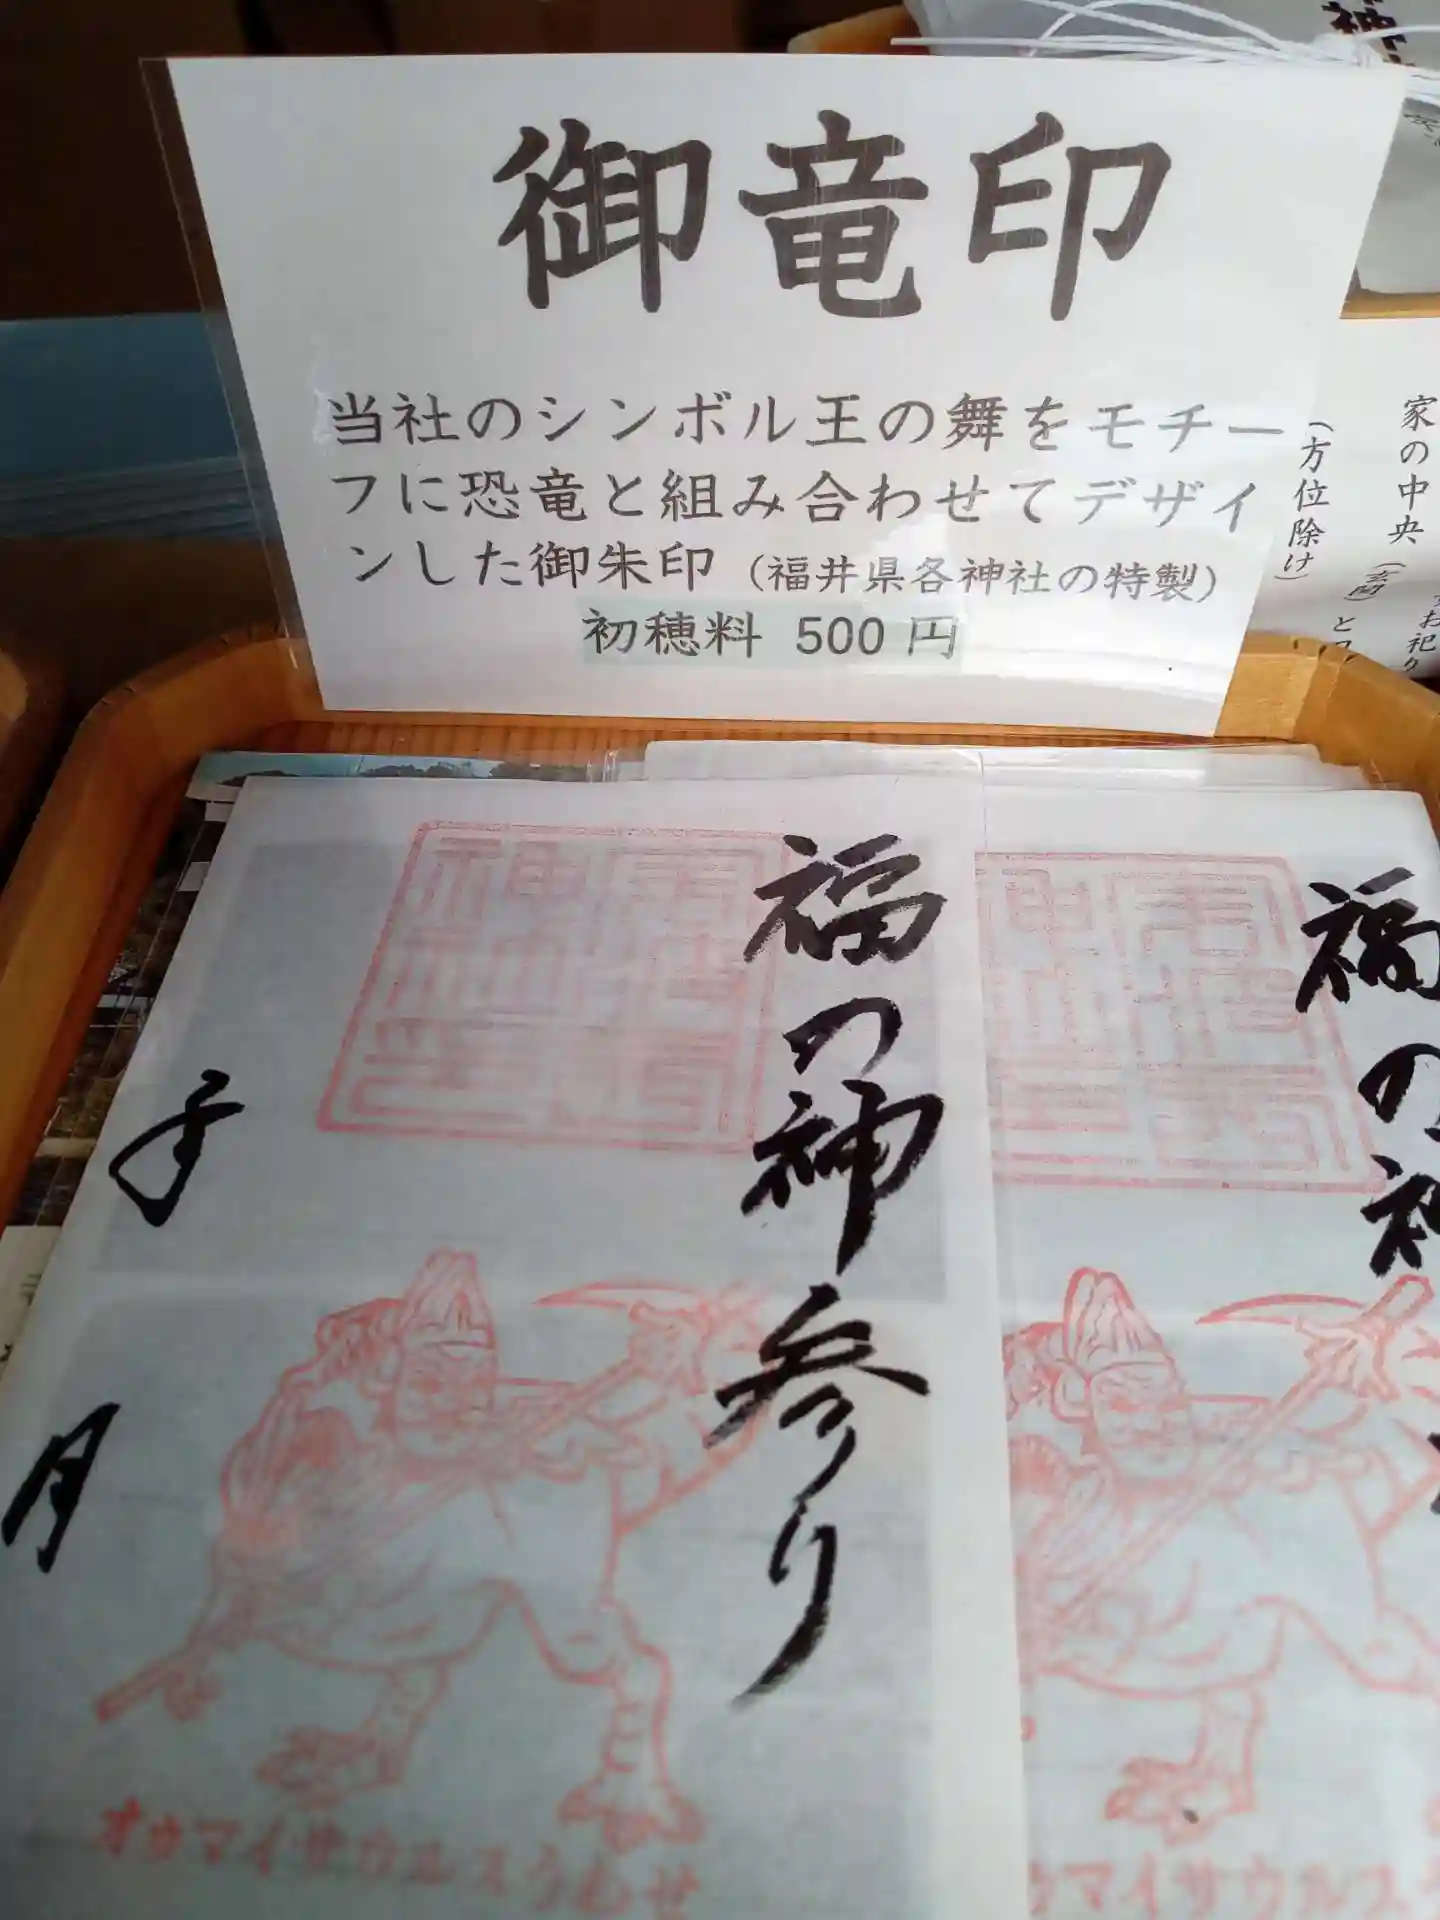 御竜印
当社のシンボル王の舞をモチー
フに恐竜と組み合わせてデザイ
ンした御朱印（福井県各神社の特製）
初穂料 500 円
（方位除け）
家の中央（玄関）と
お祀り
神
福の神参り
月
オウマイサウルスうむせ
福の神
ウマイサウルスう